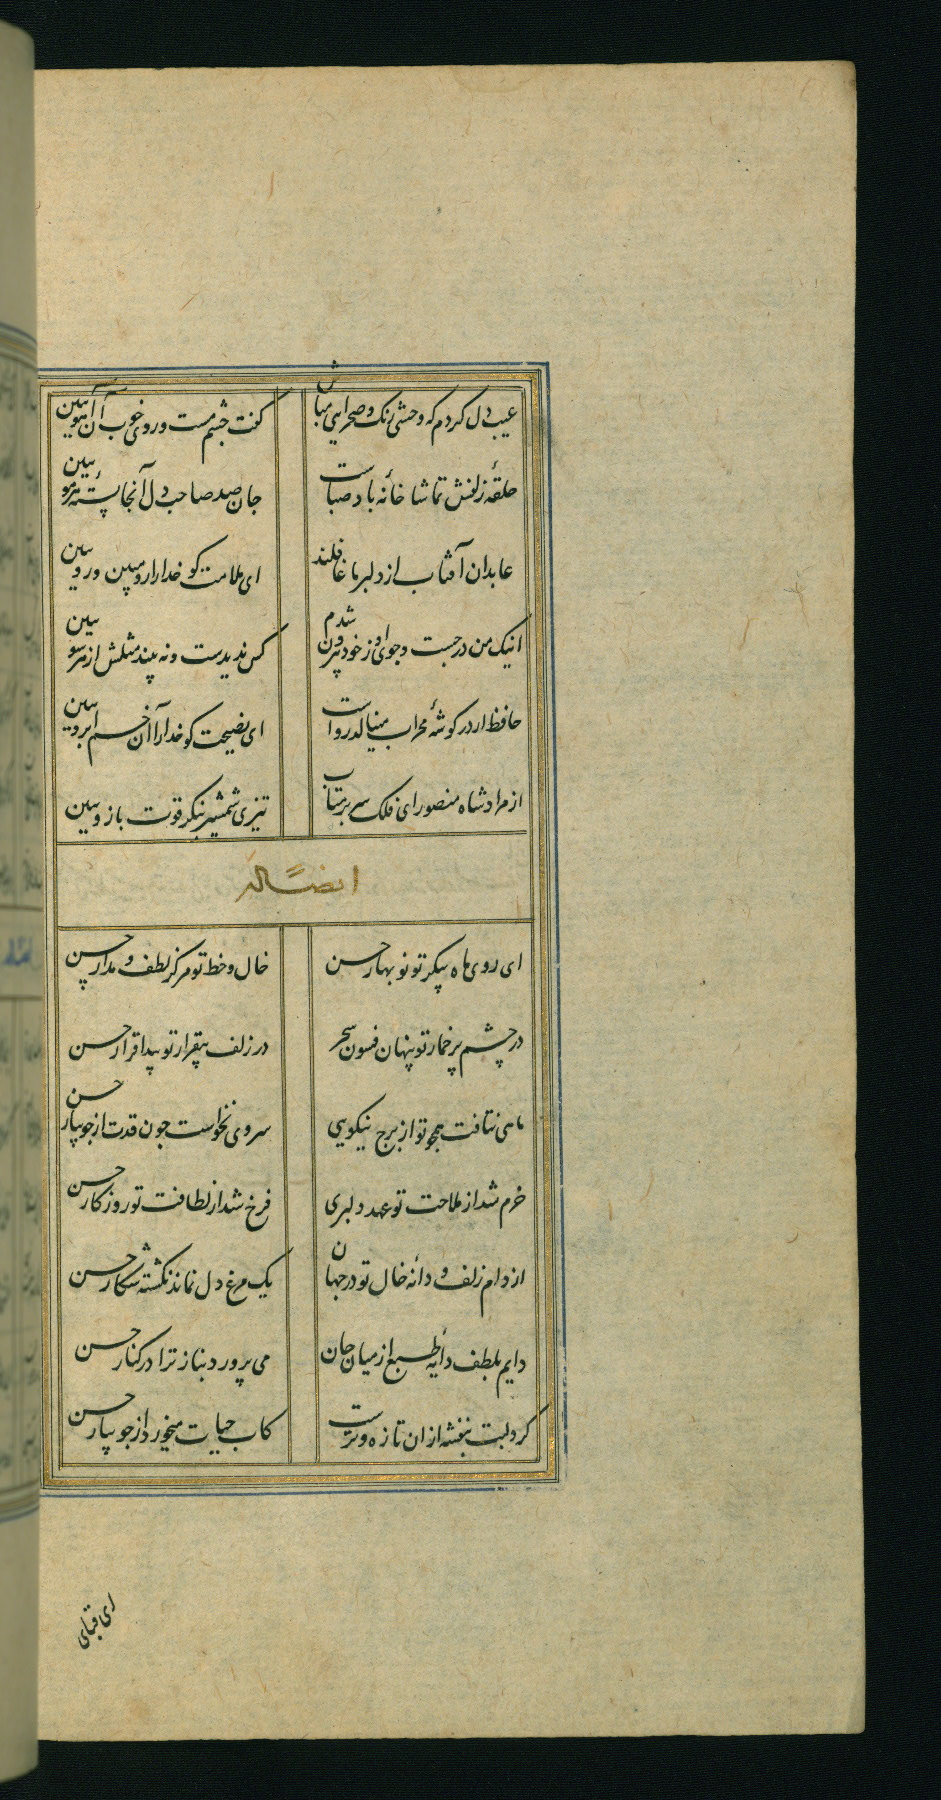 عیب دل کردم که وحشی رنک و صحرایی مباش
کفت چشم مست و روی خوب آن آهو ببین
حلقهٔ زلفش تماشا خانهٔ باد صباست
جان صد صاحب دل آنجا بستهٔ هر مو ببین
عابدان آفتاب از دلبر ما غافلند
ای ملامت کو خدارا رو مبین و رو ببین
انیک من در جست و جوی او ز خود بیرون شدم
کس ندیدست و نه بیند مثلش از هر سو ببین
حافظ ار در کوشهٔ محراب مینالد رواست
ای نصیحت کو خدارا آن خم ابرو ببین
از مراد شاه منصور ای فلک سر بر متاب
تیزی شمشیر بنکر قوت بازو ببین
ایضاً له
ای روی ماه پیکر تو نوبهار حسن
خال و خط تو مرکز لطف و مدار حسن
در چشم پر خمار تو پنهان فسون سحر
در زلف بیقرار تو پیدا قرار حسن
ماهی نتافت همچو تو از برج نیکویی
سروی نخواست جون قدت از جویبار حسن
خرم شد از ملاحت تو عهد دلبری
فرخ شد از لطافت تو روزکار حسن
از دام زلف و دانهٔ خال تو در جهان
یک مرغ دل نماند نکشته شکار حسن
دایم بلطف دایهٔ طبع از میان جان
می پرورد بناز ترا در کنار حسن
کرد لبت بنفشه از ان تازه و ترست
کاب حیات میخورد از جویبار حسن
ای قبای